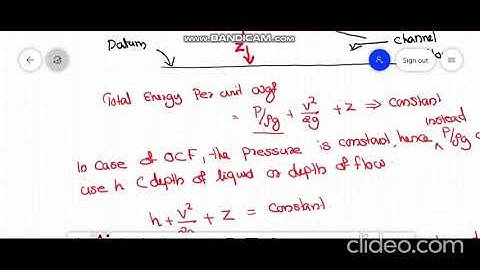 WWW.BANDICAM.COM
Datum
Z
channel
Sign out
Total Energy Per unit
= P/ρg + V²/2g + Z ⇒ constant
In case of OCF, the pressure is constant, hence ^ instead P/ρg
use h (depth of liquid or depth of flow.
h + V²/2g + Z = constant
clideo.com